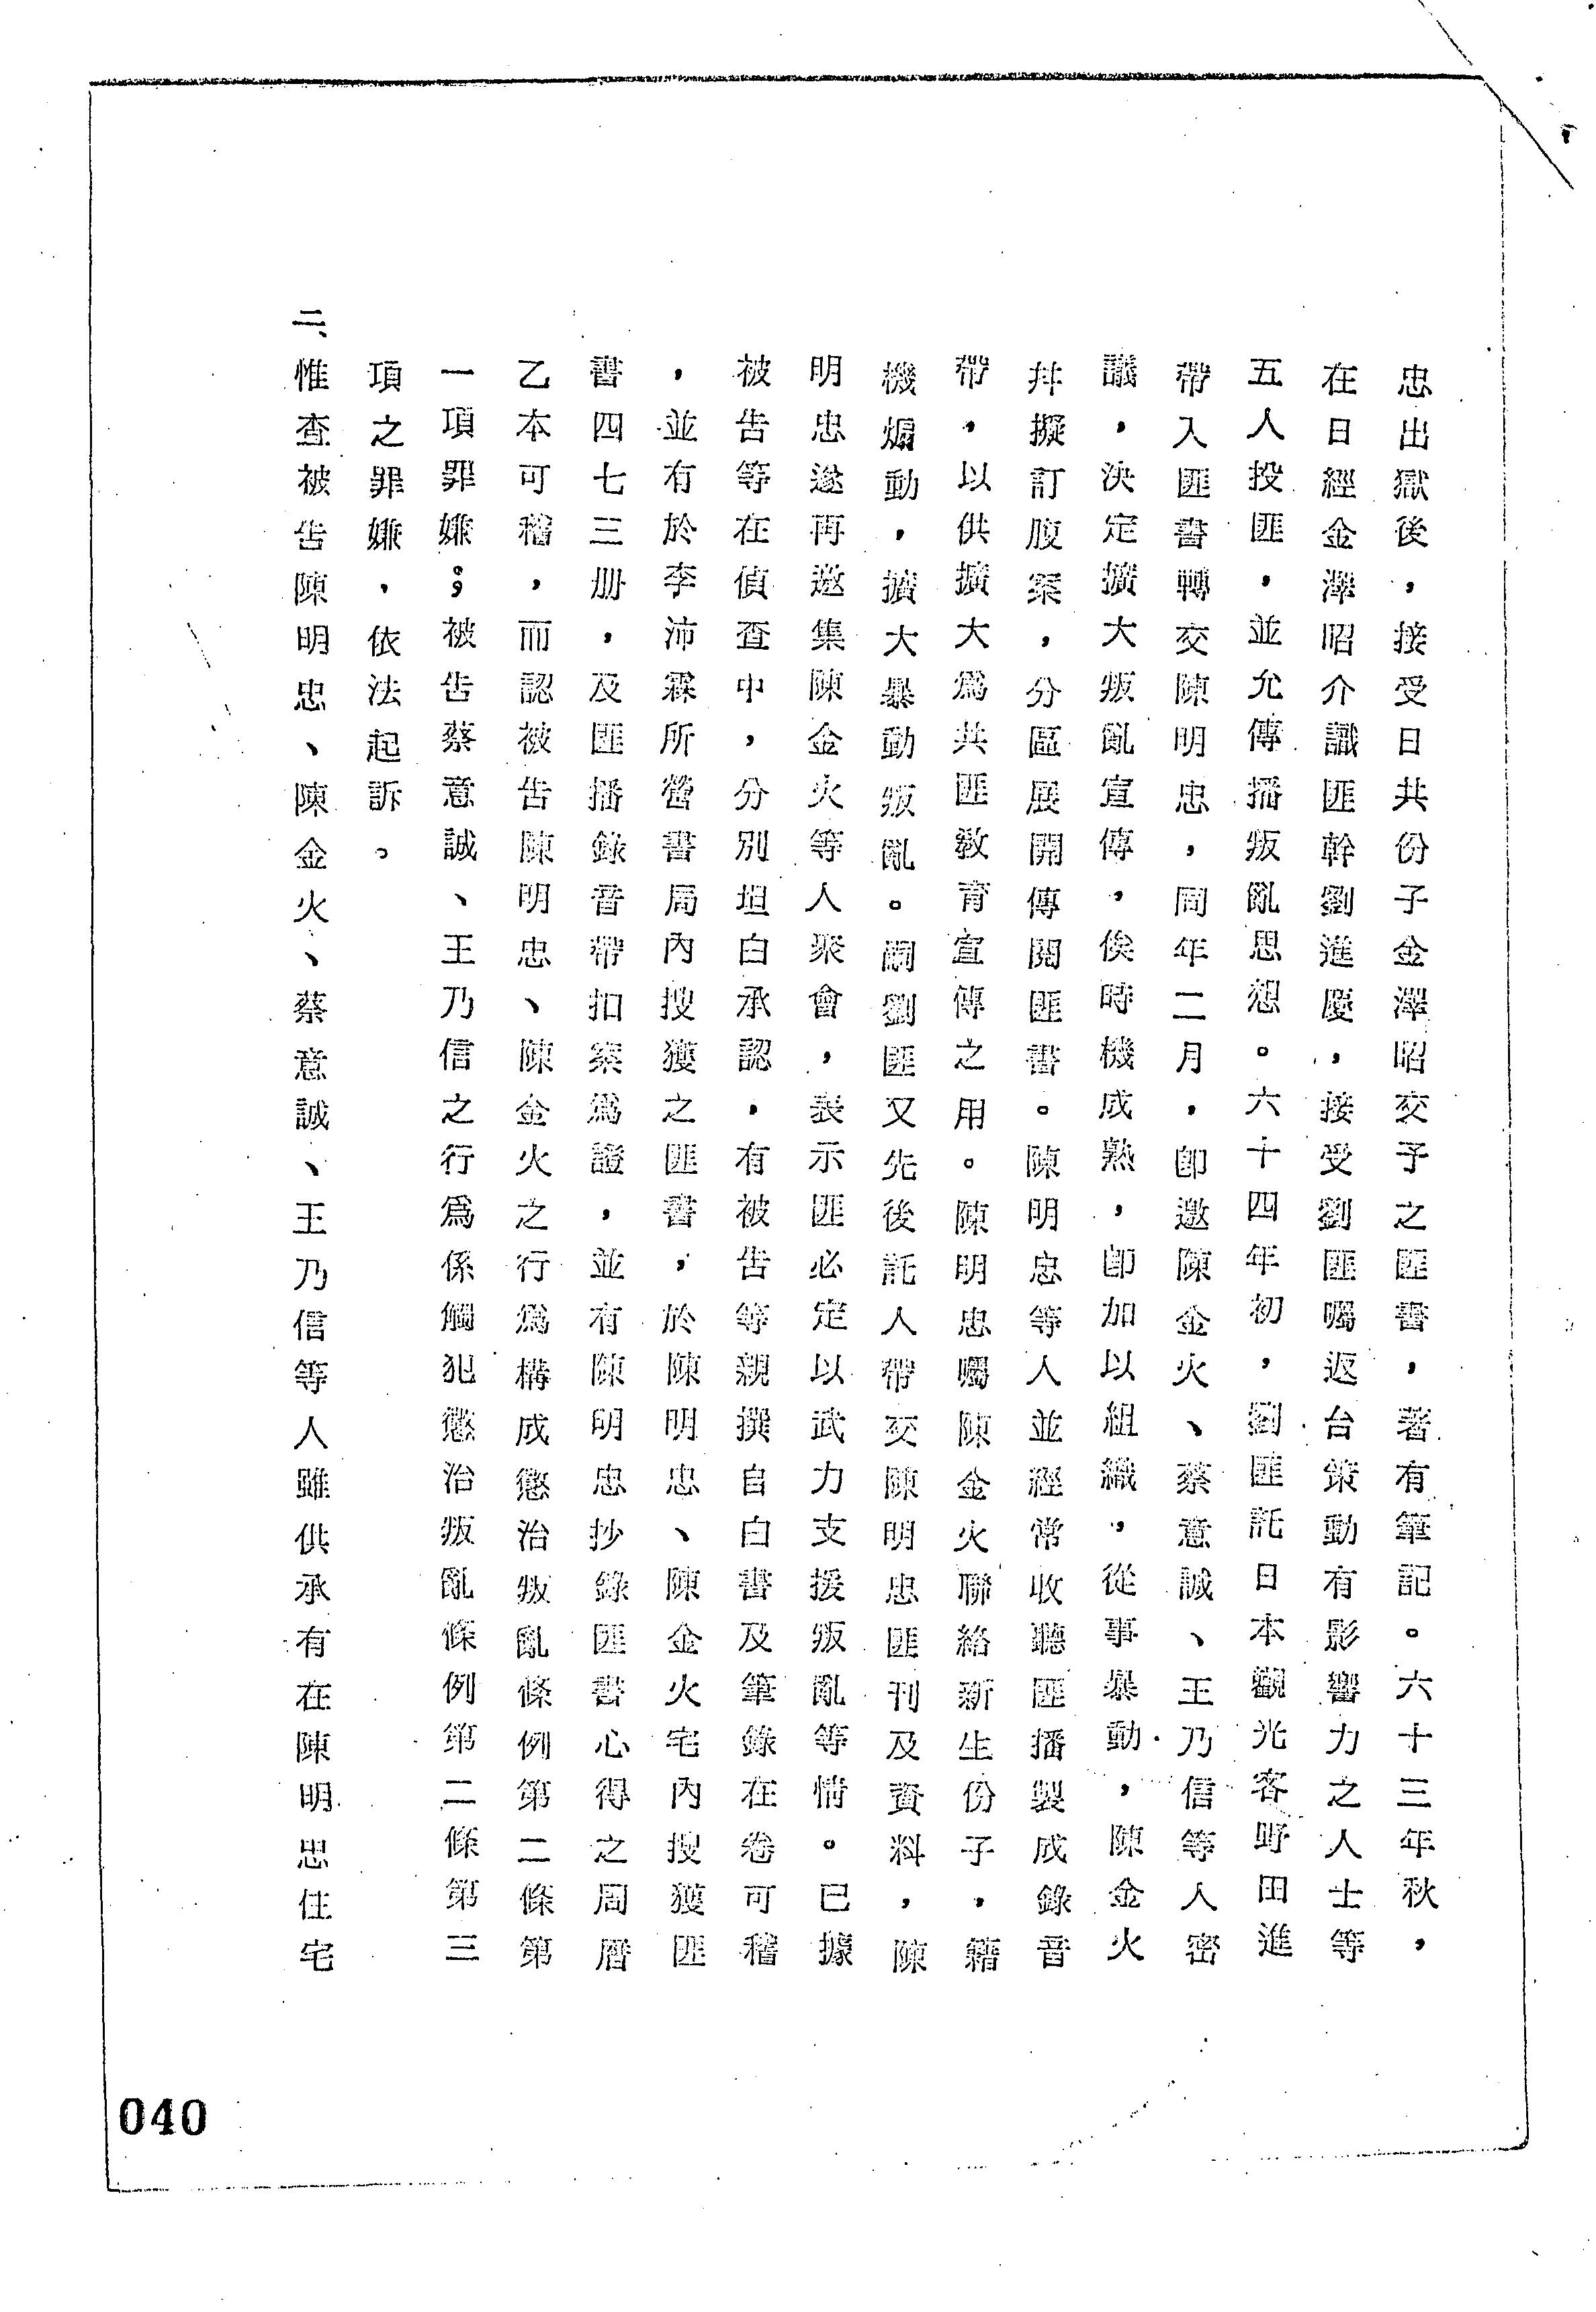 忠出獄後，接受日共份子金澤昭交予之匪書，著有筆記。六十三年秋，
在日經金澤昭介識匪幹劉進慶，接受劉匪囑返台策動有影響力之人士等
五人投匪，並允傳播叛亂思想。六十四年初，劉匪託日本觀光客野田進
帶入匪書轉交陳明忠，同年二月，卽邀陳金火、蔡意誠、王乃信等人密
議，決定擴大叛亂宣傳，俟時機成熟，卽加以組織，從事暴動，陳金火
幷擬訂腹案，分區展開傳閱匪書。陳明忠等人並經常收聽匪播製成錄音
帶，以供擴大爲共匪敎育宣傳之用。陳明忠囑陳金火聯絡新生份子，藉
機煽動，擴大暴動叛亂。嗣劉匪又先後託人帶交陳明忠匪刊及資料，陳
明忠遂再邀集陳金火等人聚會，表示匪必定以武力支援叛亂等情。已據
被告等在偵查中，分別坦白承認，有被告等親撰自白書及筆錄在卷可稽
，並有於李沛霖所營書局內搜獲之匪書，於陳明忠、陳金火宅內搜獲匪
書四七三册，及匪播錄音帶扣案爲證，並有陳明忠抄錄匪書心得之周曆
乙本可稽，而認被告陳明忠、陳金火之行爲構成懲治叛亂條例第二條第
一項罪嫌；被告蔡意誠、王乃信之行爲係觸犯懲治叛亂條例第二條第三
項之罪嫌，依法起訴。
二、惟查被告陳明忠、陳金火、蔡意誠、王乃信等人雖供承有在陳明忠住宅
040